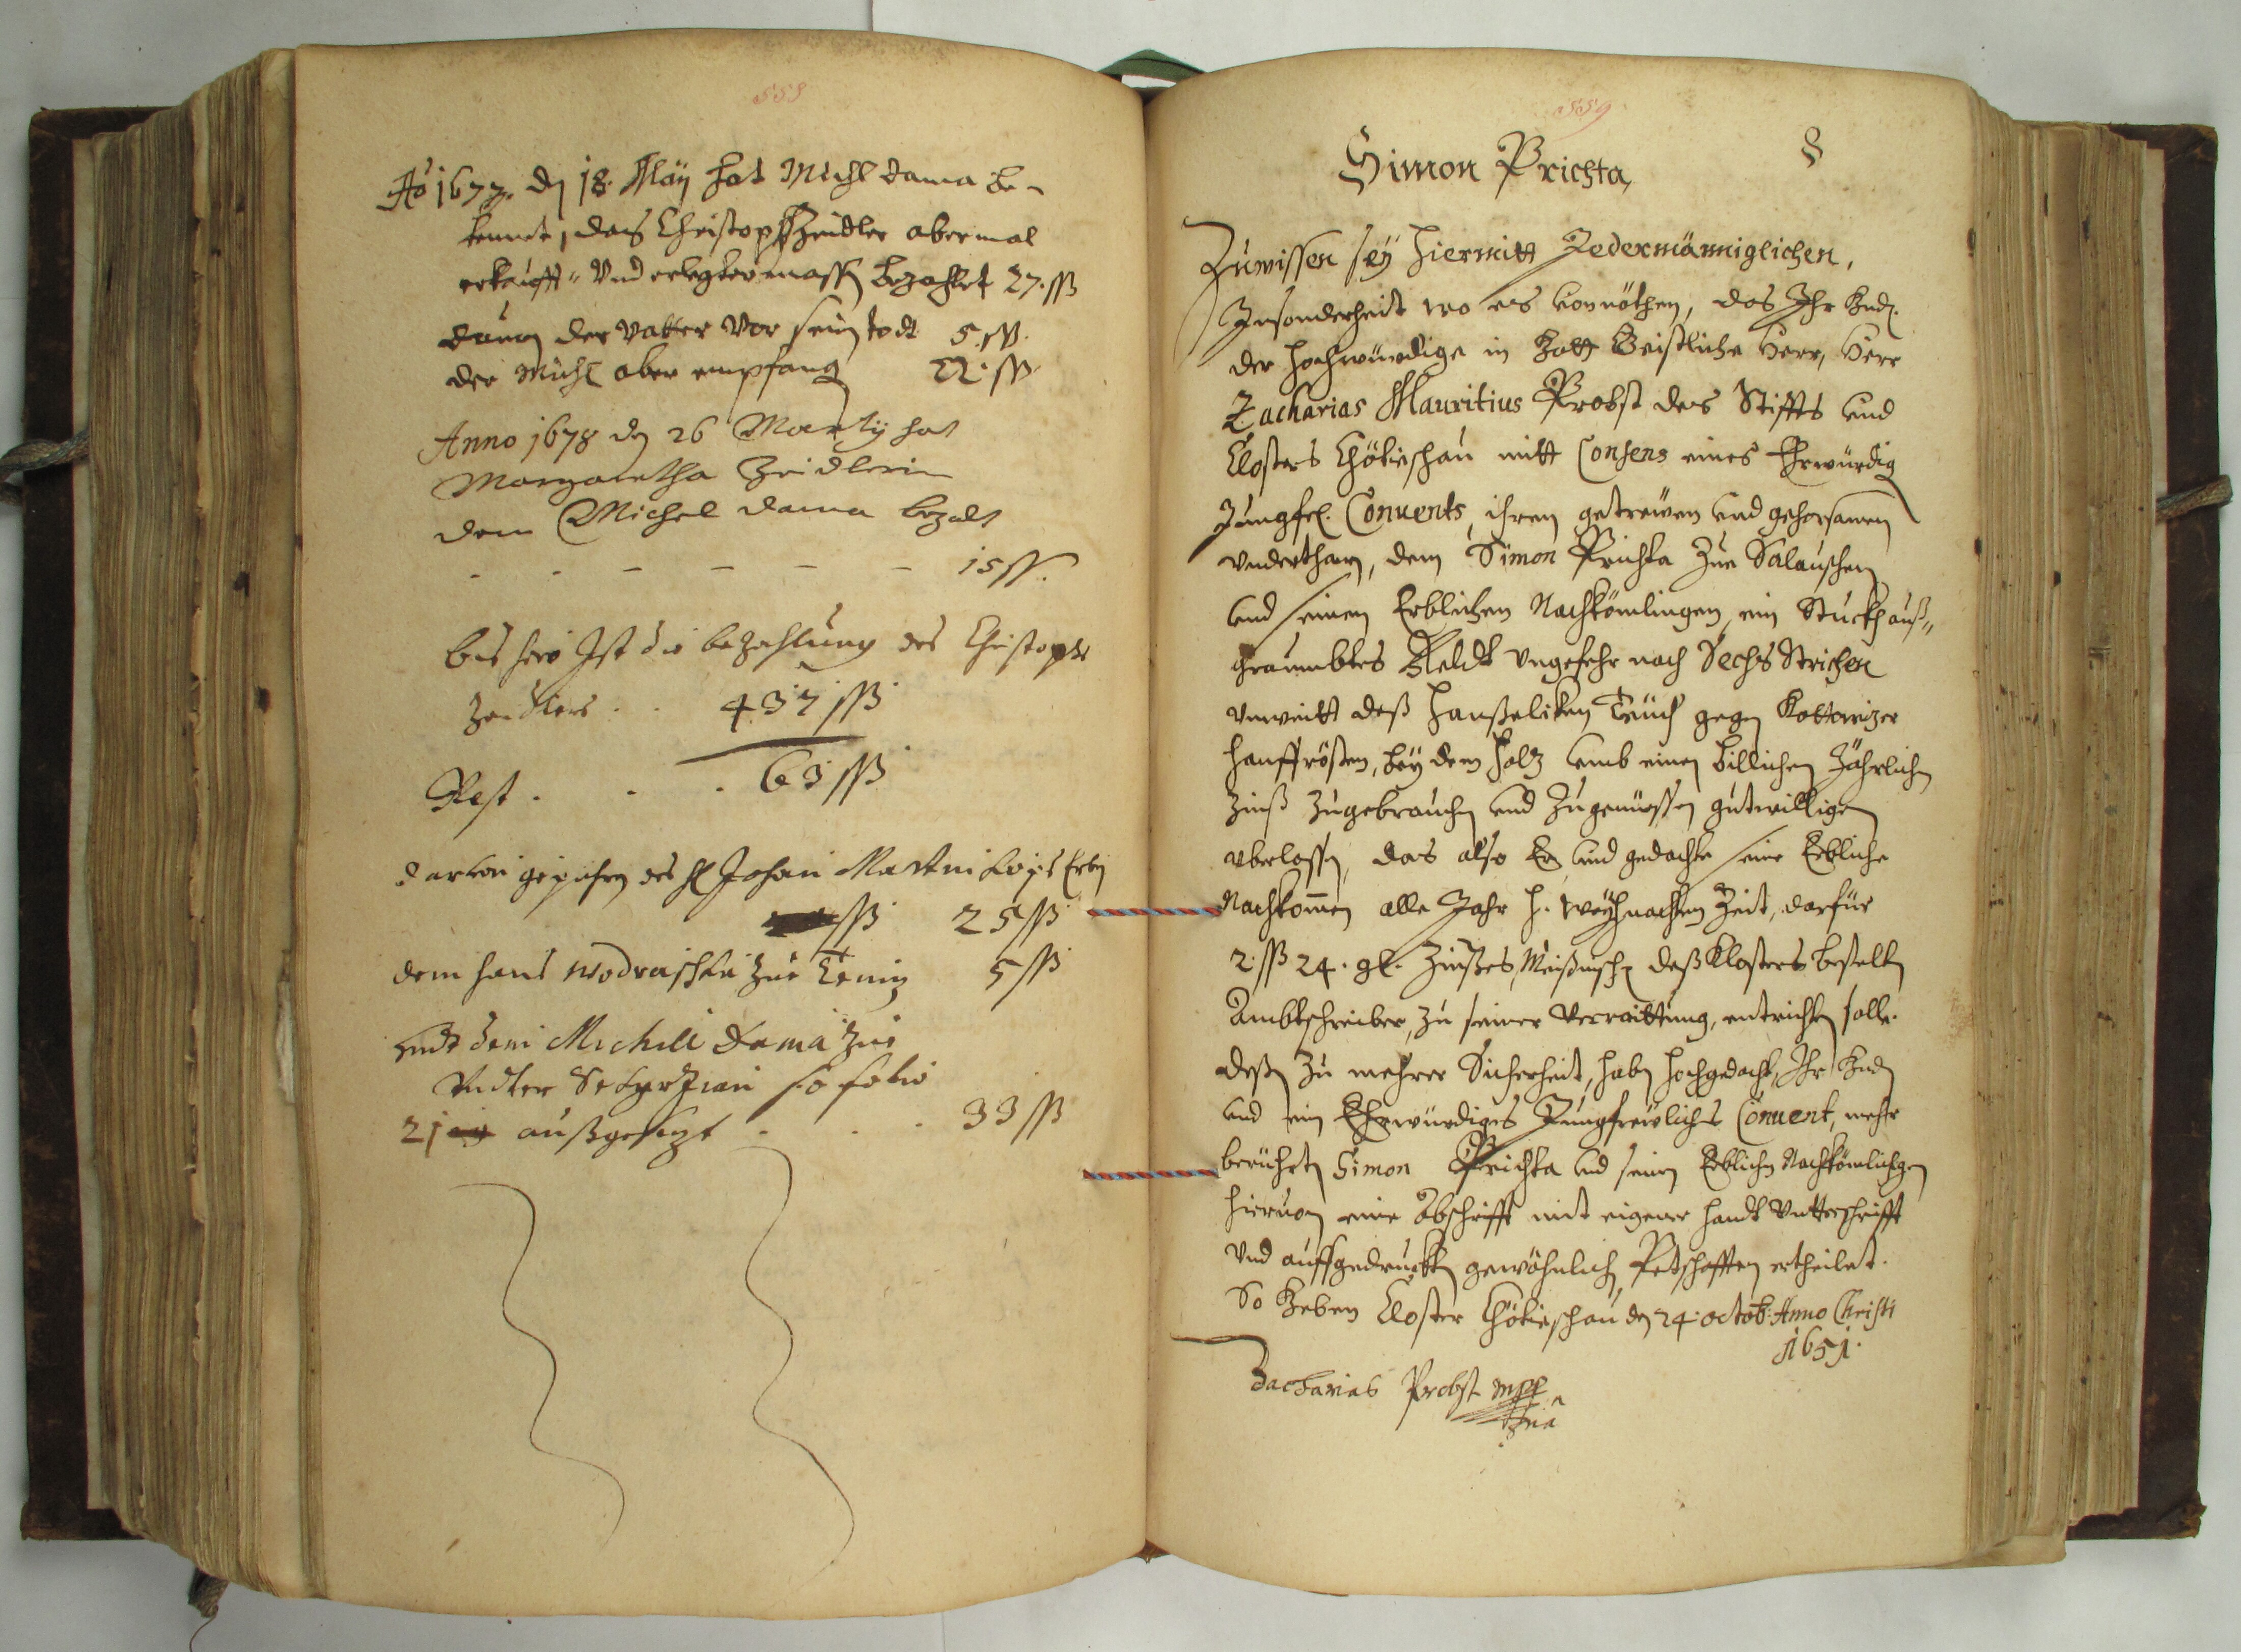 558
Ao 1677. den 18. Maÿ hat Michl Dama be-
kennet, das Christoph Zeidler abermal
erkaufft und erlegter massen bezahlet 27. ßß
dauon der Vatter vor sein todt 5. ßß.
der Michl aber empfang 22. ßß
Anno 1678 den 26 Martij hat
Margaretha Zeidlerin
dem Michel Dama bezalt
- - - - - - 15 ßß.
bis hero Ist die bezahlung des Christoph
Zeidlers . . 437 ßß
Rest . . . 63 ßß
daruon gepüren des Johan Martini Erben
ßß 25 ßß
dem Hans Wodraschka zue 5 ßß
undt dem Michell Dama zue
Unter so folio
21 außgesetzt . . . 33 ßß
559
8
Simon Prichta,
Zuwissen seÿ hiermitt Jedermänniglichen,
Insonderheit wo es vonnöthen, das Ihr Gnd.
der Hochwürdige in Gott Geistliche Herr, Herr
Zacharias Mauritius Probst des Stiffts und
Closters Chötieschau mitt Consens eines Ehrwürdig
Jungfr. Conuents, ihrem getrewen und gehorsamen
Underthan, dem Simon Prichta zue Salauschen
und seinen Erblichen Nachkömlingen, ein Stuckh auß-
geraumbtes Veldt ungefehr nach Sechs Strichen
unweitt deß Teüch gegen Kottowizer
Hanffrösten, beÿ dem Holz umb einen billichen Jährlichen
Zinß zugebrauchen und zugenüessen guetwilligen
uberlassen, das also Er und gedachte seine Erbliche
Nachkommen alle Jahr H. Weÿhnachten Zeit, darfür
2. ßß 24. gl. Zinßes Meißnisch deß Klosters bestelten
Ambtschreiber, zu seiner Verraittung, entrichten solle.
Deßen zu mehrer Sicherheit, haben hochgedacht Ihr Gnd
und ein Ehrwürdiges Jungfrewliches Conuent, mehr
berührten Simon Prichta und seinen Erblichen Nachkömlichgen
hieruon eine Abschrifft mit eigener Handt Untterschrifft
und auffgedruckten gewöhnlichen Petschafften ertheilet.
So Geben Closter Chötieschau den 24. Octob: Anno Christi
1651.
Zacharias Probst mpp